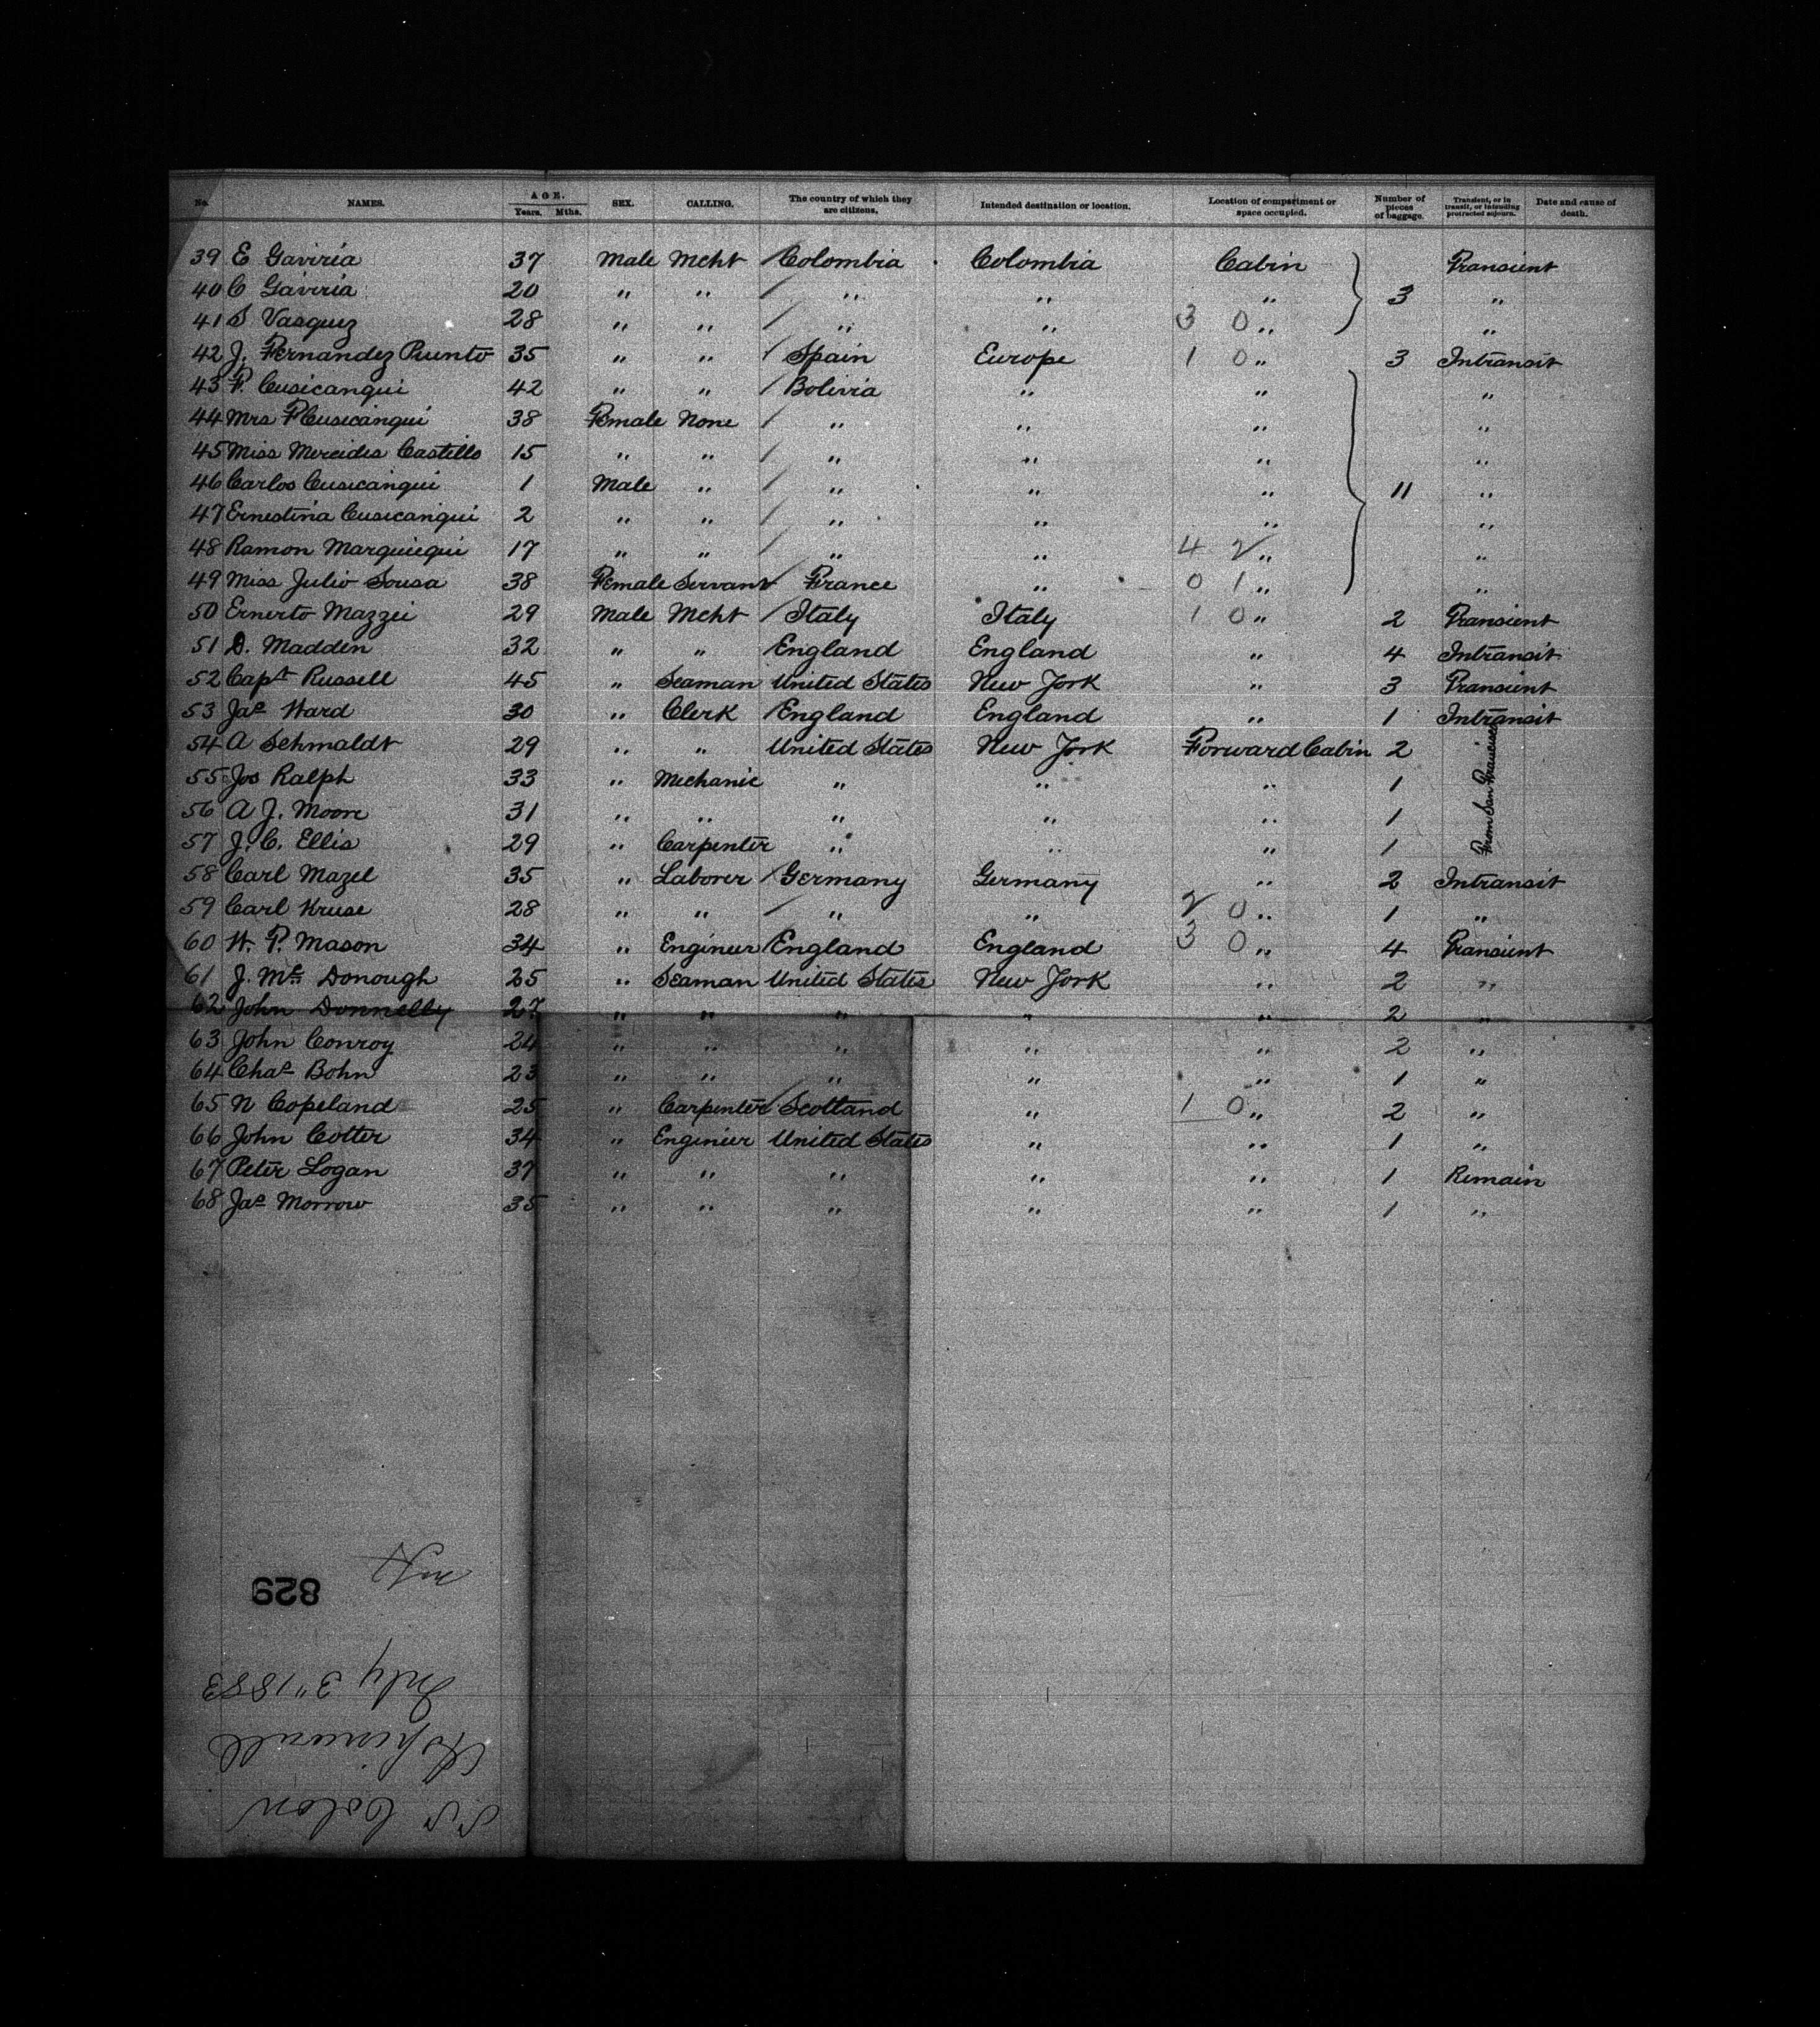 No. NAMES. AGE. Years. Mths. SEX. CALLING. The country of which they are citizens. Intended destination or location. Location of compartment or space occupied. Number of pieces of baggage. Transient, or in transit, or intending protracted sojourn. Date and cause of death.
39 E Gaviria 37 Male Mcht / Colombia Colombia Cabin } Transient
40 C Gaviria 20 " " / " " " 3 "
41 S Vasquez 28 " " / " " 3 0 " "
42 J. Fernandez Puento 35 " " / Spain Europe 1 0 " 3 Intransit
43 F. Cusicanqui 42 " " / Bolivia " " } "
44 Mrs F Cusicanqui 38 Female None / " " " "
45 Miss Mercides Castillo 15 " " / " " " "
46 Carlos Cusicanqui 1 Male " / " " " 11 "
47 Ernestina Cusicanqui 2 " " / " " " "
48 Ramon Marquiequi 17 " " / " " 4 2 " "
49 Miss Julio Sousa 38 Female Servant / France " 0 1 " "
50 Ernerto Mazzei 29 Male Mcht / Italy Italy 1 0 " 2 Transient
51 D. Madden 32 " " / England England " 4 Intransit
52 Capt Russell 45 " Seaman United States New York " 3 Transient
53 Jas Ward 30 " Clerk / England England " 1 Intransit
54 A Schmaldt 29 " " United States New York Forward Cabin 2 From San Francisco
55 Jos Ralph 33 " Mechanic " " " 1
56 A J. Moore 31 " " " " " 1
57 J. C. Ellis 29 " Carpenter " " " 1
58 Carl Mazel 35 " Laborer / Germany Germany " 2 Intransit
59 Carl Kruse 28 " " / " " 2 0 " 1 "
60 W. P. Mason 34 " Engineer / England England 3 0 " 4 Transient
61 J. Mc Donough 25 " Seaman United States New York " 2 "
62 John Donnelly 27 " " " " " 2 "
63 John Conroy 24 " " " " " 2 "
64 Chas Bohn 23 " " " " " 1 "
65 N Copeland 25 " Carpenter / Scotland " 1 0 " 2 "
66 John Cotter 34 " Engineer United States " " 1 "
67 Peter Logan 37 " " " " " 1 Remain
68 Jas Morrow 35 " " " " " 1 "
SS Colon
Aspinwall
July 3" 1883
829